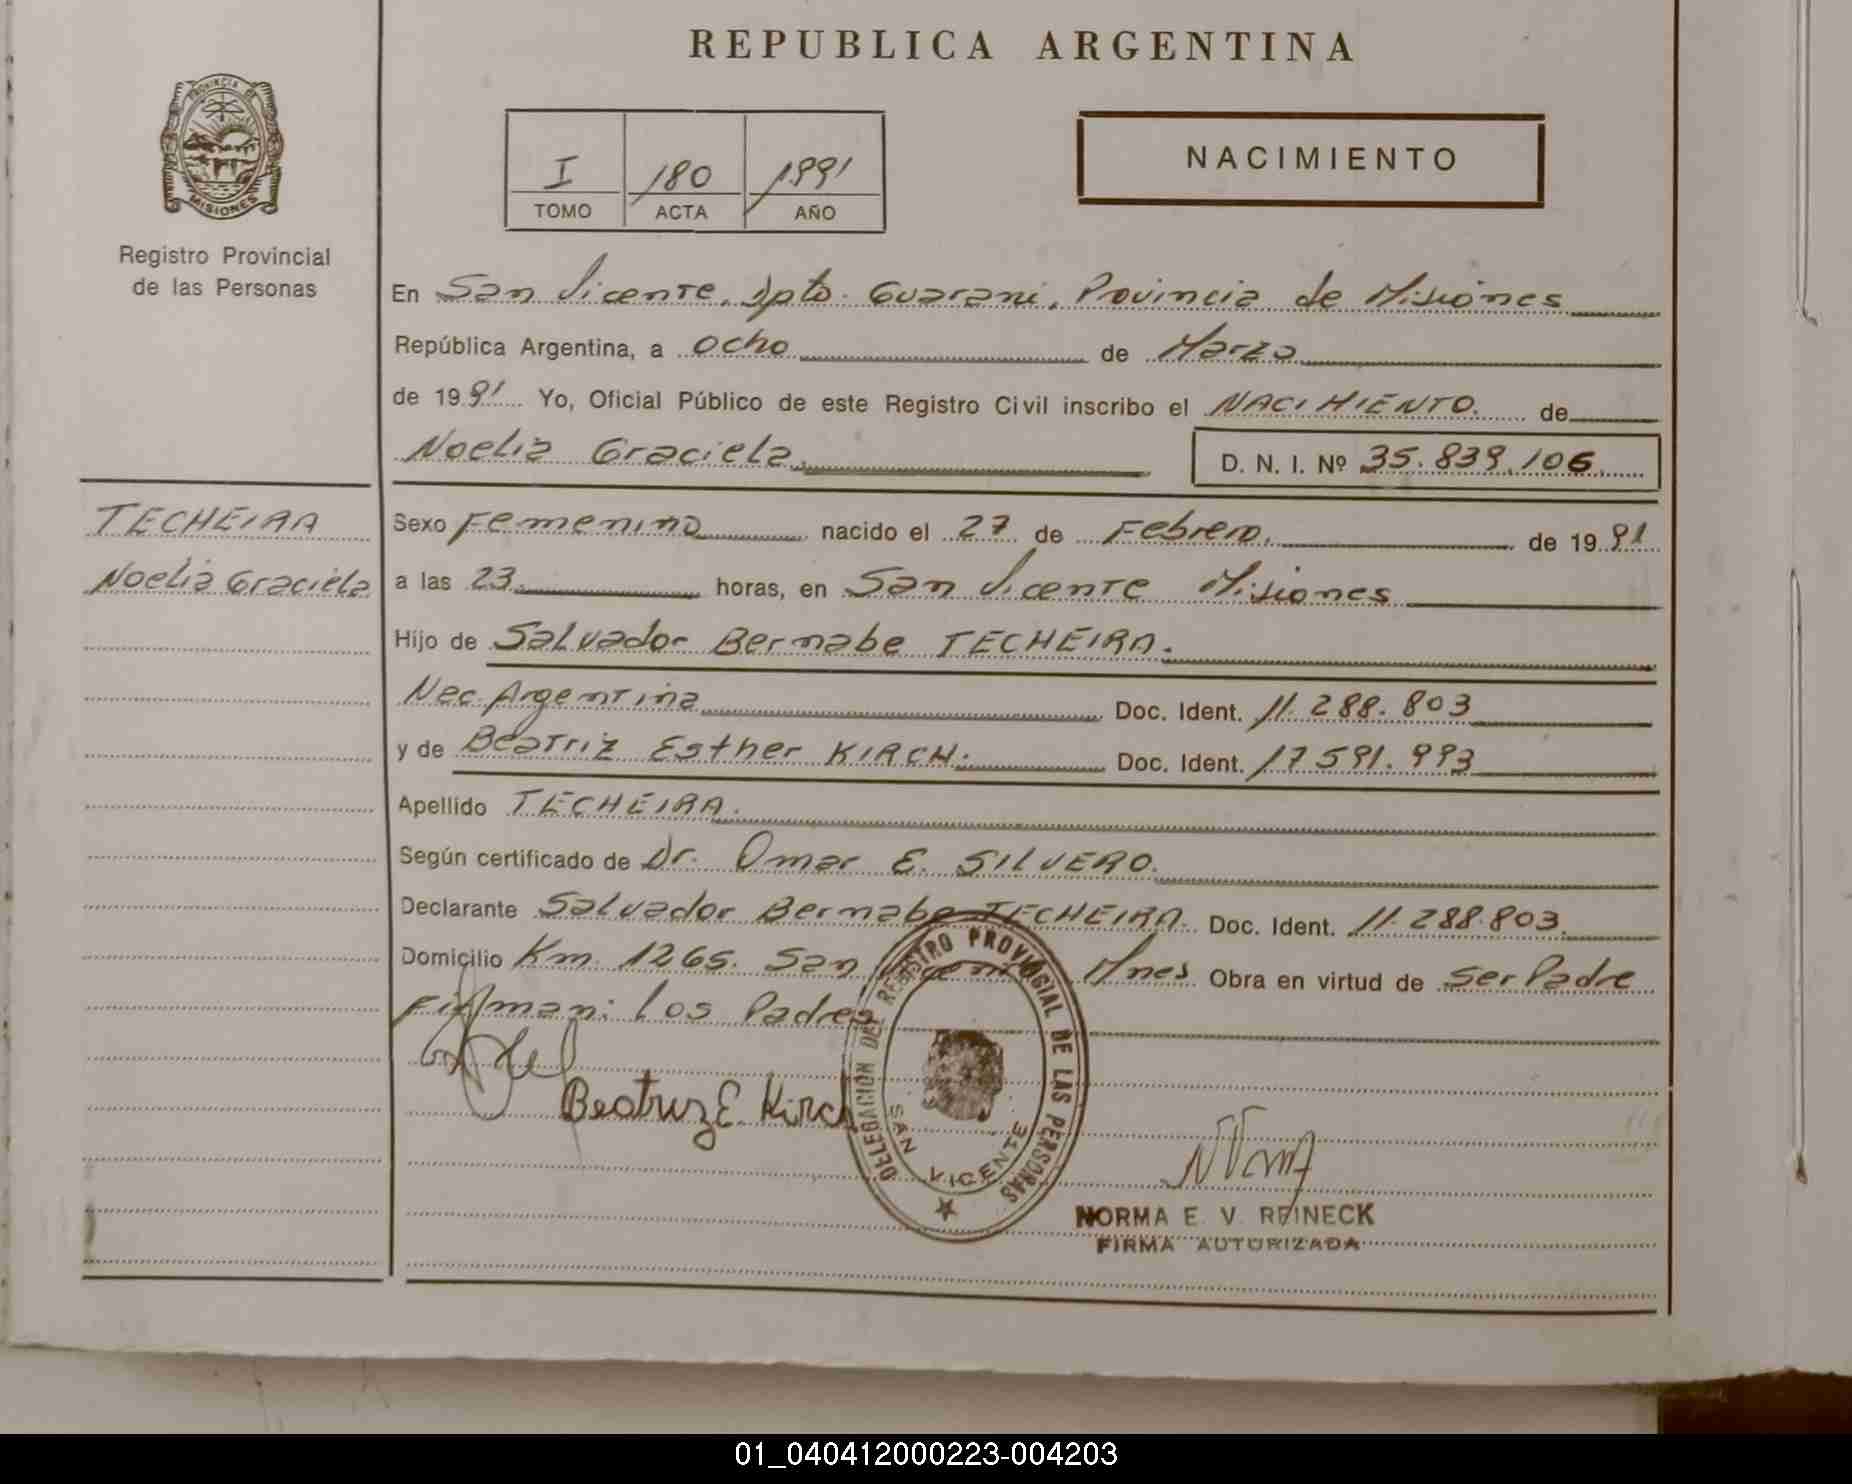 REPUBLICA ARGENTINA
PROVINCIA DE
MISIONES
Registro Provincial
de las Personas
I 180 1991
TOMO ACTA AÑO
NACIMIENTO
En San Vicente, Dpto. Guarani, Provincia de Misiones
República Argentina, a ocho de Marzo
de 1991 Yo, Oficial Público de este Registro Civil inscribo el NACIMIENTO. de
Noelia Graciela. D. N. I. Nº 35.839.106.
TECHEIRA
Noelia Graciela
Sexo Femenino nacido el 27 de Febrero. de 1991
a las 23. horas, en San Vicente Misiones
Hijo de Salvador Bernabe TECHEIRA.
Nac. Argentina Doc. Ident. 11.288.803
y de Beatriz Esther KIRCH. Doc. Ident. 17591.993
Apellido TECHEIRA.
Según certificado de Dr. Omar E. SILVERO.
Declarante Salvador Bernabe TECHEIRA. Doc. Ident. 11.288.803.
Domicilio Km. 1265. San Vicente Mnes Obra en virtud de ser Padre
Firman: Los Padres
Beatriz E. Kirch
DELEGACION DEL REGISTRO PROVINCIAL DE LAS PERSONAS
SAN VICENTE
NORMA E. V. REINECK
FIRMA AUTORIZADA
01_040412000223-004203